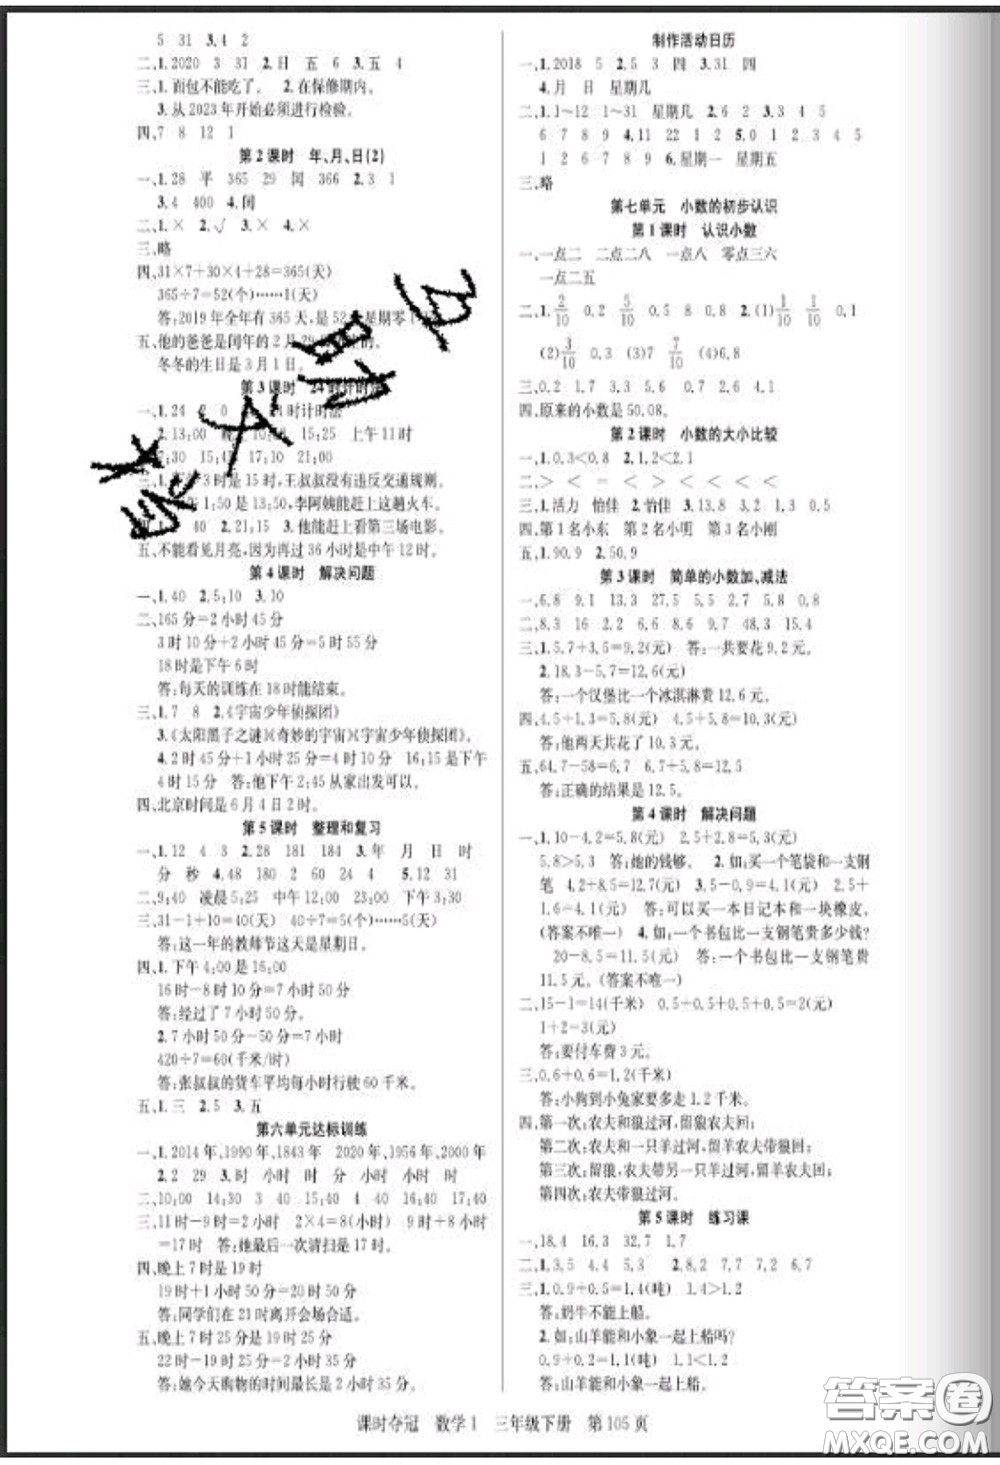 5 31 3.4 2
二、1.2020 3 31 2.日 五 6 3.五 4
三、1.面包不能吃了。 2.在保修期内。
3.从2023年开始必须进行检验。
四、7 8 12 1
第2课时 年、月、日(2)
一、1.28 平 365 29 闰 366 2.3 1
3.4 400 4.闰
二、1.× 2.√ 3.× 4.×
三、略
四、31×7+30×4+28=365(天)
365÷7=52(个)……1(天)
答:2019年全年有365天,是52 星期零
五、他的爸爸是闰年的2月29
冬冬的生日是3月1日。
第3课时 24时计时法
一、1.24 2 0 时计时法
2.13:00 15:25 上午11时
15:45 17:10 21:00
3时是15时,王叔叔没有违反交通规则。
1:50是13:50,李阿姨能赶上这趟火车。
40 2.21:15 3.他能赶上看第三场电影。
五、不能看见月亮,因为再过36小时是中午12时。
第4课时 解决问题
一、1.40 2.5:10 3.10
二、165分=2小时45分
3时10分+2小时45分=5时55分
18时是下午6时
答:每天的训练在18时能结束。
三、1.7 8 2.《宇宙少年侦探团》
3.《太阳黑子之谜》《奇妙的宇宙》《宇宙少年侦探团》。
4.2时45分+1小时30分=4时15分 16:15是下午
4时15分 答:他下午2:45从家出发可以。
四、北京时间是6月4日2时。
第5课时 整理和复习
一、1.12 4 3 2.28 181 184 3.年 月 日 时
分 秒 4.48 180 2 60 24 4 5.12 31
二、9:40 凌晨5:25 中午12:00 23:00 下午3:30
三、31-1+10=40(天) 40÷7=5(个)……5(天)
答:这一年的教师节这天是星期日。
四、1.下午4:00是16:00
16时-8时10分=7小时50分
答:经过了7小时50分。
2.7小时50分-50分=7小时
420÷7=60(千米/时)
答:张叔叔的货车平均每小时行驶60千米。
五、1.三 2.5 3.五
第六单元达标训练
一、1.2014年,1990年,1843年 2020年,1956年,2000年
2.2 29 3.时 时 分 小时 分 4.4
二、10:00 14:10 3 40 15:40 16:40 17:40
三、11时-9时=2小时 2×4=8(小时) 9时+8小时
=17时 答:她最后一次清扫是17时。
四、晚上7时是19时
19时+1小时50分=20时50分
答:同学们在21时离开会场合适。
五、晚上7时25分是19时25分
22时-19时25分=2小时35分
答:她今天购物的时间最长是2小时35分。
制作活动日历
一、1.2018 5 2.5 3 四 3.31 四
4.月 日 星期几
二、1.1~12 1~31 星期几 2.6 2 3.3 4 5
6 7 8 9 4.11 22 1 2 5.0 1 2 3 4 5
1 2 5 6 7 8 9 6.星期一 星期五
三、略
第七单元 小数的初步认识
第1课时 认识小数
一、一点二 二点二八 一点八 零点三六
一点二五
二、1.2/10 0.2 1.5058 0.8 2.(1)1/10 0.1
(2)3/10 0.3 (3)7/10 0.7 (4)6.8
三、0.2 1.8 1.3 2.7 2.6 4.1
四、原来的小数是50.08。
第2课时 小数的大小比较
一、1.0.3<0.5 2.1.2<2.1
三、1.活力 怡佳 2.怡佳 活力
四、第1名小东 第2名小明 第3名小刚
五、1.90.9 2.50.9
第3课时 简单的小数加、减法
一、6.8 9.1 13.3 27.5 5.5 5.7 2.8
二、8.3 16 2.2 6.6 8.6 9.7 48.3 15.4
三、1.5.7+3.5=9.2(元) 答:一共要花9.2元。
2.18.3-5.7=12.6(元)
答:一个汉堡比一个冰淇淋贵12.6元。
四、4.5+1.3=5.8(元) 4.5+5.8=10.3(元)
答:他两天共花了10.3元。
五、64.7-58=6.7 6.7+5.8=12.5
答:正确的结果是12.5。
第4课时 解决问题
一、1.10-4.2=5.8(元) 2.5+2.8=5.3(元)
5.8>5.3 答:她的钱够。 2.如:买一个笔袋和一支钢
笔 4.2+8.5=12.7(元) 3.5-0.9=4.1(元) 2.5+
1.6=4.1(元) 答:可以买一本日记本和一块橡皮。
(答案不唯一) 4.如:一个书包比一支钢笔贵多少钱?
20-8.5=11.5(元) 答:一个书包比一支钢笔贵
11.5元。(答案不唯一)
二、15-1=14(千米) 0.5+0.5+0.5+0.5=2(元)
1+2=3(元)
答:要付车费3元。
三、0.6+0.6=1.2(千米)
答:小狗到小兔家要多走1.2千米。
四、第一次:农夫和狼过河,留狼农夫回;
第二次:农夫和一只羊过河,留羊农夫带狼回;
第三次:留狼,农夫与另一只羊过河,留羊农夫回;
第四次:农夫带狼过河。
第5课时 练习课
一、18.4 16.3 32.7 1.7
二、1.3.5 4.4 5.5 2.8.2 7.7 7.2 6.7
三、1.0.9+0.5=1.4(吨) 1.4>1.2
答:奶牛不能上船。
2.如:山羊能和小象一起上船吗?
0.9+0.2=1.1(吨) 1.1<1.2
答:山羊能和小象一起上船。
课时夺冠 数学1 三年级下册 第105页
答案圈
MXQE.COM